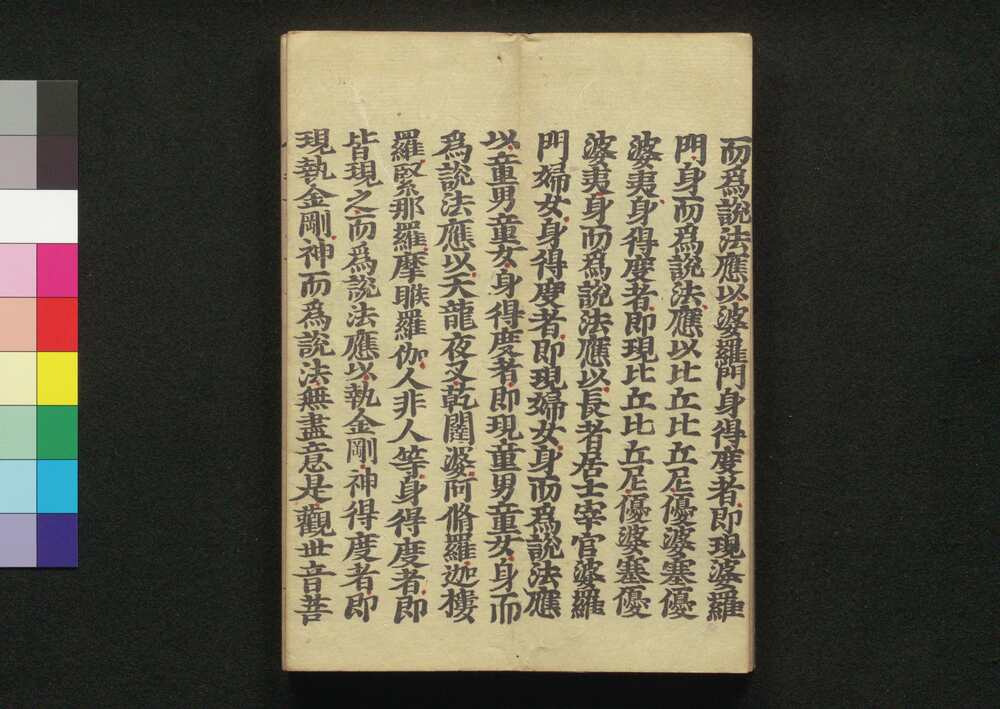 而為說法應以婆羅門身得度者即現婆羅
門身而為說法應以比丘比丘尼優婆塞優
婆夷身得度者即現比丘比丘尼優婆塞優
婆夷身而為說法應以長者居士宰官婆羅
門婦女身得度者即現婦女身而為說法應
以童男童女身得度者即現童男童女身而
為說法應以天龍夜叉乾闥婆阿脩羅迦樓
羅緊那羅摩睺羅伽人非人等身得度者即
皆現之而為說法應以執金剛神得度者即
現執金剛神而為說法無盡意是觀世音菩